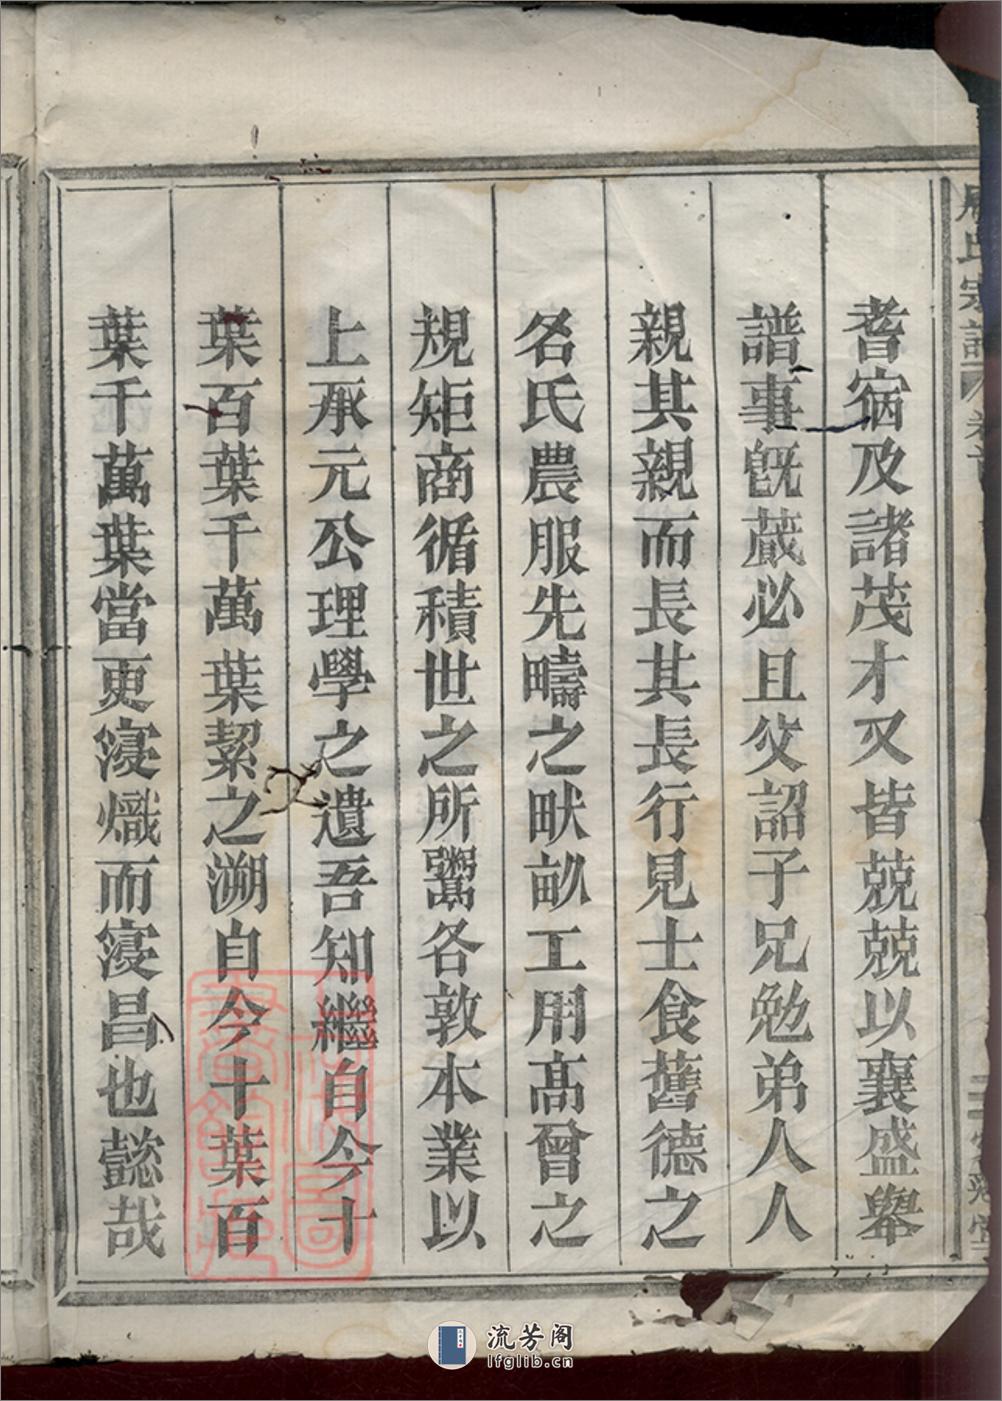 耆宿及諸茂才又皆兢兢以襄盛舉
譜事旣蕆必且父詔子兄勉弟人人
親其親而長其長行見士食舊德之
名氏農服先疇之畎畝工用高曾之
規矩商循積世之所鬻各敦本業以
上承元公理學之遺吾知繼自今十
葉百葉千萬葉絜之溯自今十葉百
葉千萬葉當更寖熾而寖昌也懿哉
氏宗譜
流芳阁
lfglib.cn